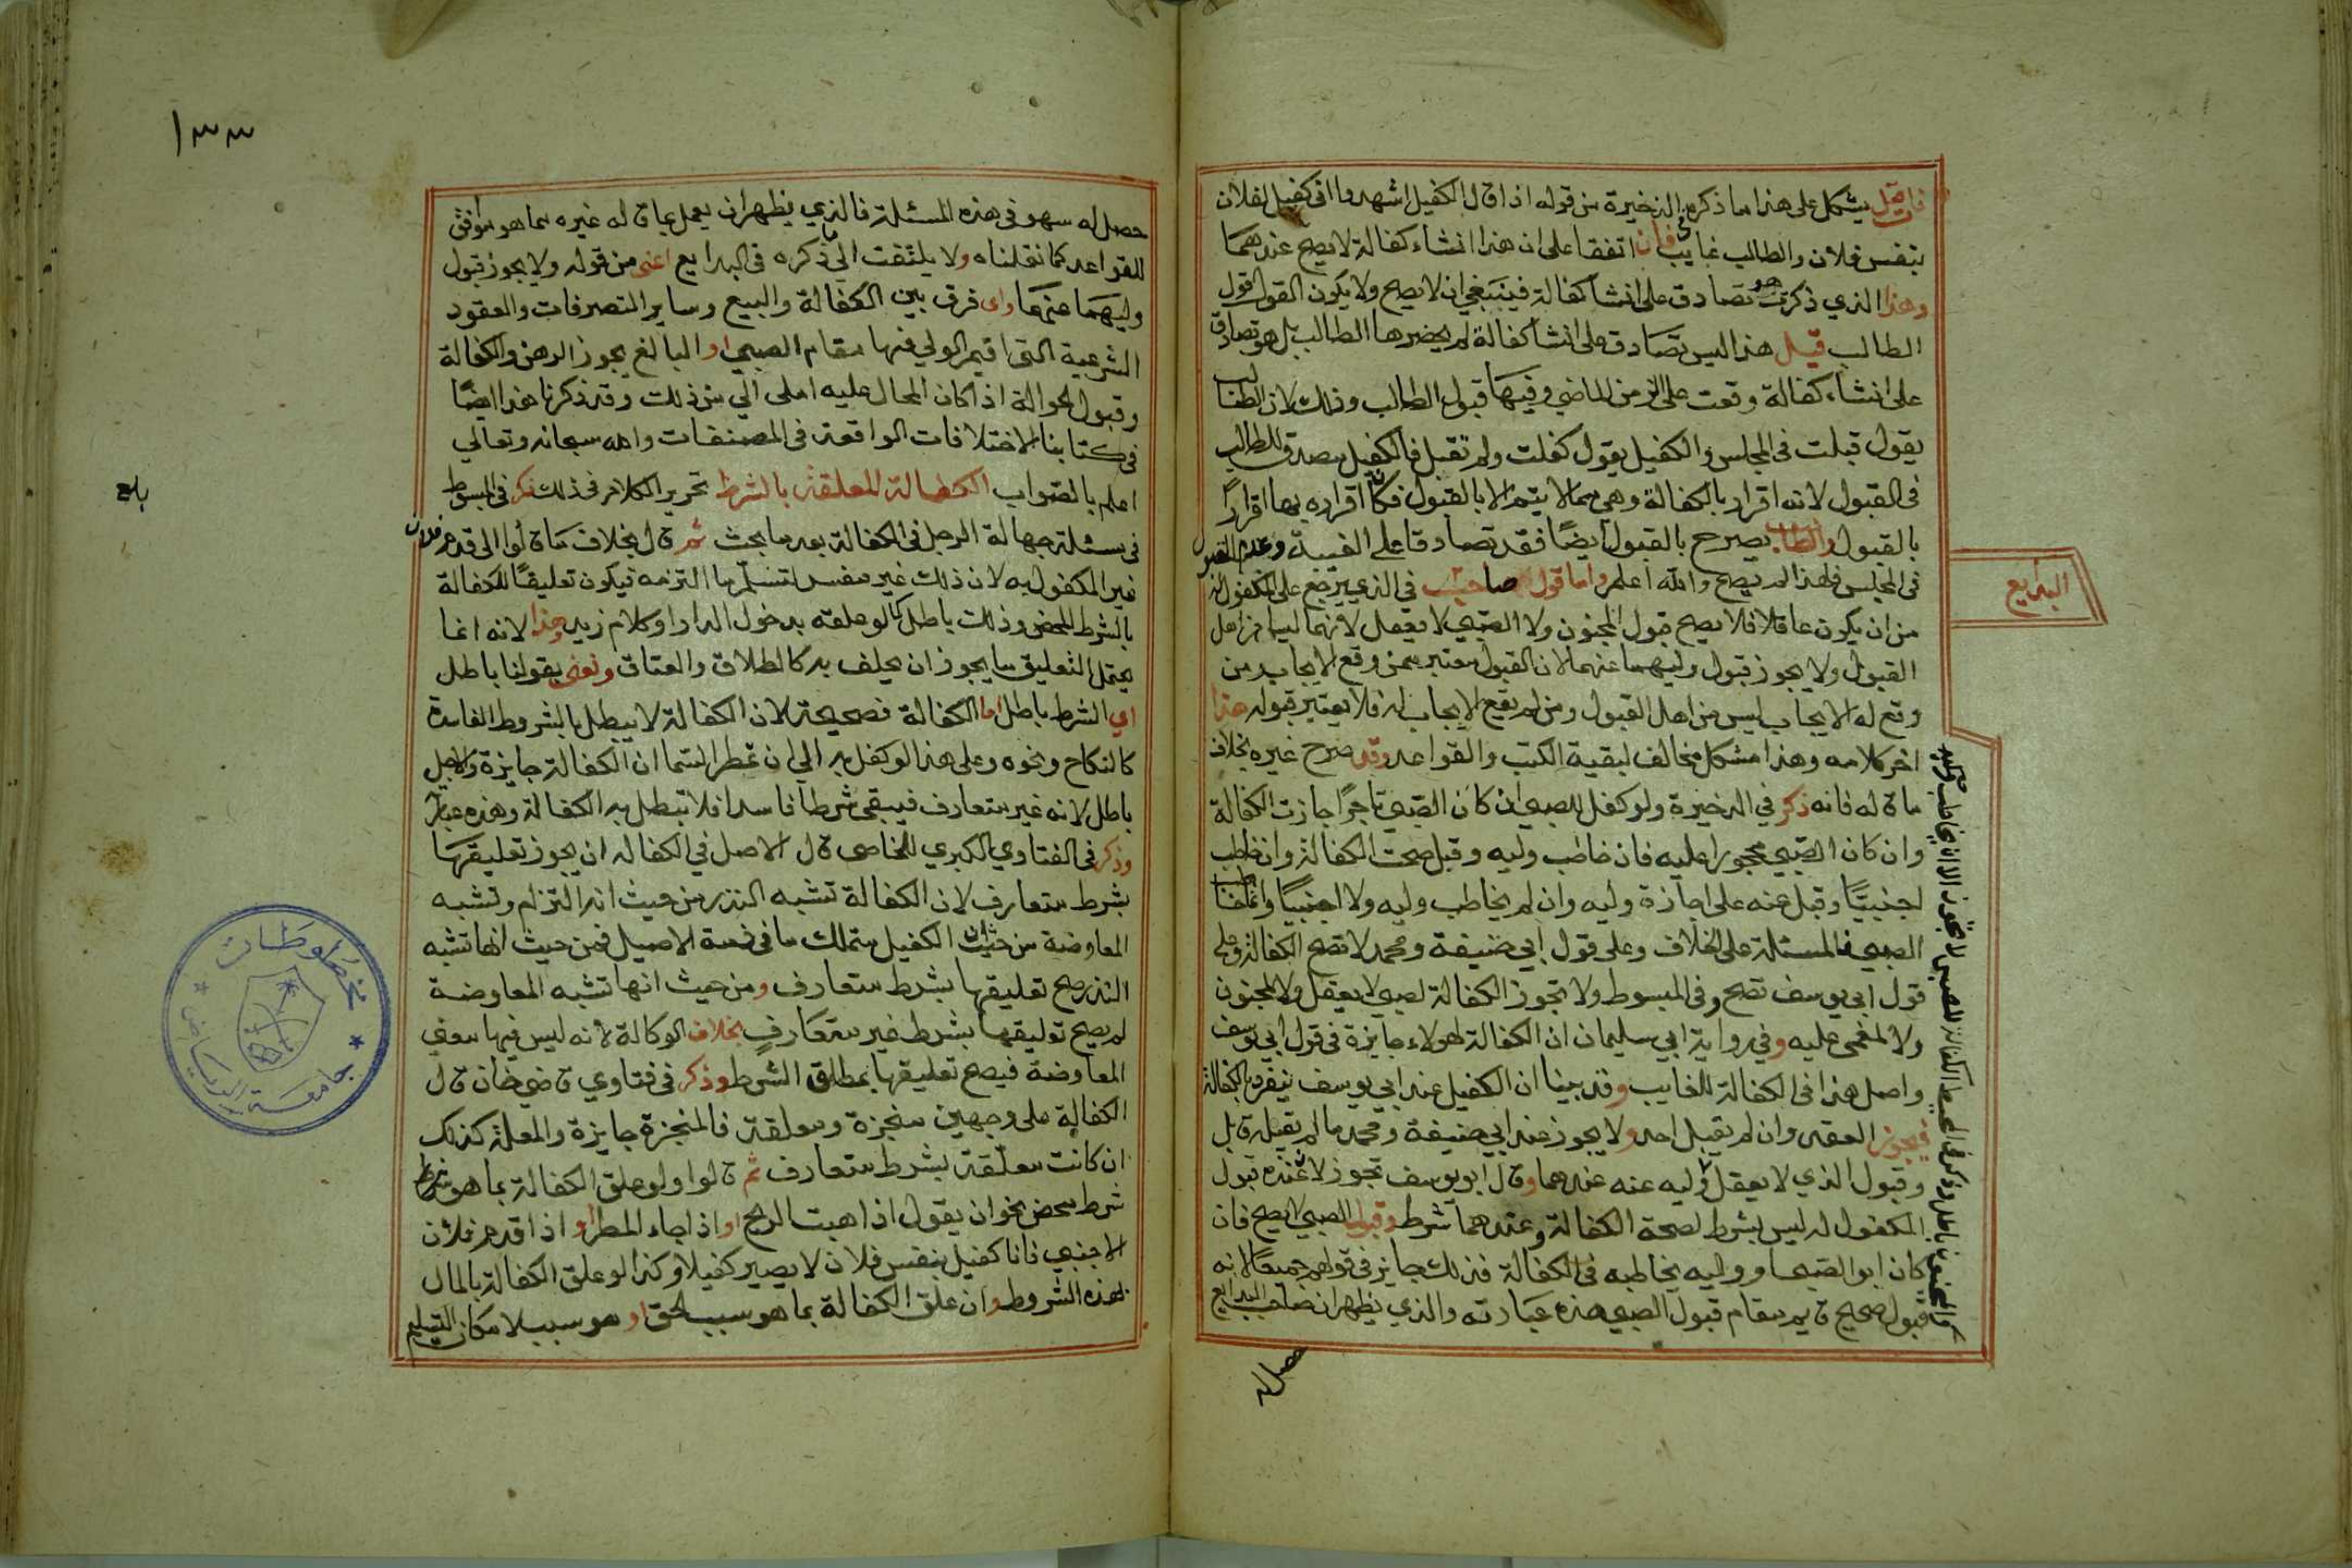 فان قيل يشكل على هذا ما ذكره في الذخيرة من قوله اذا قال الكفيل اشهدوا اني كفيل لفلان
بنفس فلان والطالب غايب فان اتفقا على ان هذا انشاء كفالة لا يصح عندهما
وهذا الذي ذكرت هو تصادق على انشا كفالة فينبغي ان لا يصح ولا يكون القول قول
الطالب قيل هذا ليس تصادق على انشا كفالة لم يحضرها الطالب بل هو تصادق
على انشاء كفالة وقعت على الزمن الماضي وفيها قبول الطالب وذلك لان الطالب
يقول قبلت في المجلس والكفيل يقول كفلت ولم تقبل فالكفيل مصدق للطالب
في القبول لانه اقرار بالكفالة وهي مما لا يتم الا بالقبول فكان اقراره بها اقرارًا
بالقبول والطالب يصرح بالقبول ايضًا فقد تصادقا على الغيبة وعدم القبول
في المجلس فلهذا لم يصح والله اعلم واما قول صاحب في الذي يرجع على المكفول له
من ان يكون عاقلا فلا يصح قبول المجنون ولا الصبي لا يعقل لانهما ليسا من اهل
القبول ولا يجوز قبول وليهما عنهما لان القبول معتبر ممن وقع الايجاب له ومن
وقع له الايجاب ليس من اهل القبول ومن لم يقع الايجاب له فلا يعتبر قبوله هذا
اخر كلامه وهذا مشكل مخالف لبقية الكتب والقواعد وقد صرح غيره بخلاف
ما قاله فانه ذكر في الذخيرة ولو كفل للصبي ان كان الصبي تاجرًا جازت الكفالة
وان كان الصبي محجورا عليه فان خاطب وليه وقبل صحت الكفالة وان خاطب
اجنبيًا وقبل عنه على اجازة وليه وان لم يخاطب وليه ولا اجنبيًا وانما خاطب
الصبي فالمسئلة على الخلاف وعلى قول ابي حنيفة ومحمد لا تصح الكفالة وعلى
قول ابي يوسف تصح وفي المبسوط ولا تجوز الكفالة لصبي لا يعقل ولا لمجنون
ولا لمغمى عليه وفي رواية ابي سليمان ان الكفالة لهولاء جايزة في قول ابي يوسف
واصل هذا في الكفالة للغايب وقد بينا ان الكفيل عند ابي يوسف ينفرد بالكفالة
فيجوز العقد وان لم يقبل احد ولا يجوز عند ابي حنيفة ومحمد ما لم يقبله قابل
وقبول الذي لا يعقل وليه عنه عندهما وقال ابو يوسف تجوز لان عنده قبول
المكفول له ليس بشرط لصحة الكفالة وعندهما شرط وقبول الصبي لا يصح فان
كان ابو الصبي او وليه يخاطبه في الكفالة فذلك جايز في قولهم جميعًا لانه
قبول صحيح قايم مقام قبول الصبي هذه عبارته والذي يظهر ان صاحب البدايع
حصل له
البدايع
١٣٣
حصل له سهو في هذه المسئلة فالذي يظهر ان يعمل بما قاله غيره مما هو موافق
للقواعد كما نقلناه ولا يلتفت الى ما ذكره في البدايع اعني من قوله ولا يجوز قبول
وليهما عنهما واي فرق بين الكفالة والبيع وساير التصرفات والعقود
الشرعية التي اقيم الولي فيها مقام الصبي او البالغ يجوز الرهن والكفالة
وقبول الحوالة اذا كان المحال عليه املى الي من ذلك وقد ذكرنا هذا ايضًا
في كتابنا الاختلافات الواقعة في المصنفات والله سبحانه وتعالي
اعلم بالصواب الكفالة المعلقة بالشرط تحرير الكلام في ذلك ذكر في المبسوط
في مسئلة جهالة الرجل في الكفالة بعد ما بحث ثم قال بخلاف ما قالوا الى قدم فلان
غير المكفول به لان ذلك غير مفس لتسلم ما التزمه فيكون تعليقًا للكفالة
بالشرط المحض وذلك باطل كما لو علقه بدخول الدار او كلام زيد وهذا لانه انما
يحتمل التعليق ما يجوز ان يحلف به كالطلاق والعتاق ونعني بقولنا باطل
اي الشرط باطل اما الكفالة فصحيحة لان الكفالة لا يبطل بالشروط الفاسدة
كالنكاح ونحوه وعلى هذا لو كفل به الي ان تمطر السما ان الكفالة جايزة والاجل
باطل لانه غير متعارف فيبقى شرطا فاسدا فلا تبطل به الكفالة وهذه عبارته
وذكر في الفتاوي الكبري للخاصي قال الاصل في الكفاله ان يجوز تعليقها
بشرط متعارف لان الكفالة تشبه النذر من حيث انه التزام وتشبه
المعاوضة من حيث ان الكفيل متملك ما في ذمة الاصيل فمن حيث انها تشبه
النذر صح تعليقها بشرط متعارف ومن حيث انها تشبه المعاوضة
لم يصح توليقها بشرط غير متعارف بخلاف الوكالة لانه ليس فيها معني
المعاوضة فيصح تعليقها بمطلق الشرط وذكر في فتاوي قاضي خان قال
الكفالة على وجهين منجزة ومعلقة فالمنجزة جايزة والمعلقة كذلك
ان كانت معلقة بشرط متعارف ثم قالوا ولو علق الكفالة بما هو شرط
شرط محض نحو ان يقول اذا هبت الريح او اذا جاء المطر او اذا قدم فلان
الاجنبي فانا كفيل بنفس فلان لا يصير كفيلا وكذا لو علق الكفالة بالمال
بهذه الشروط وان علق الكفالة بما هو سبب لحق او هو سبب لامكان التسليم
بلغ
مخطوطات
جامعة الرياض